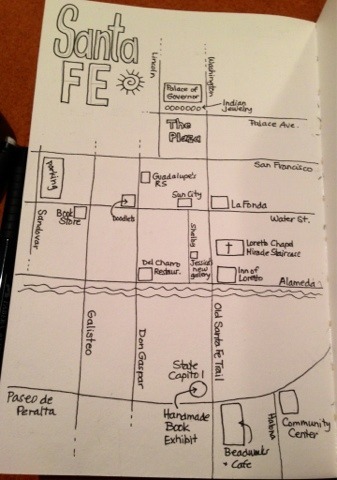 Santa
FE
Lincoln
Washington
Palace of
Governor
Indian
Jewelry
The
Plaza
Palace Ave.
San Francisco
Parking
Guadalupe's
RS
Sun City
La Fonda
Sandoval
Book
Store
Doodlets
Water St.
Shelby
Loretto Chapel
Miracle Staircase
Del Charro
Restaur.
Jessica's
new
gallery
Inn of
Loretto
Alameda
Galisteo
Don Gaspar
Old Santa Fe Trail
State
Capitol
Paseo de
Peralta
Handmade
Book
Exhibit
Beadworks
+ Cafe
Community
Center